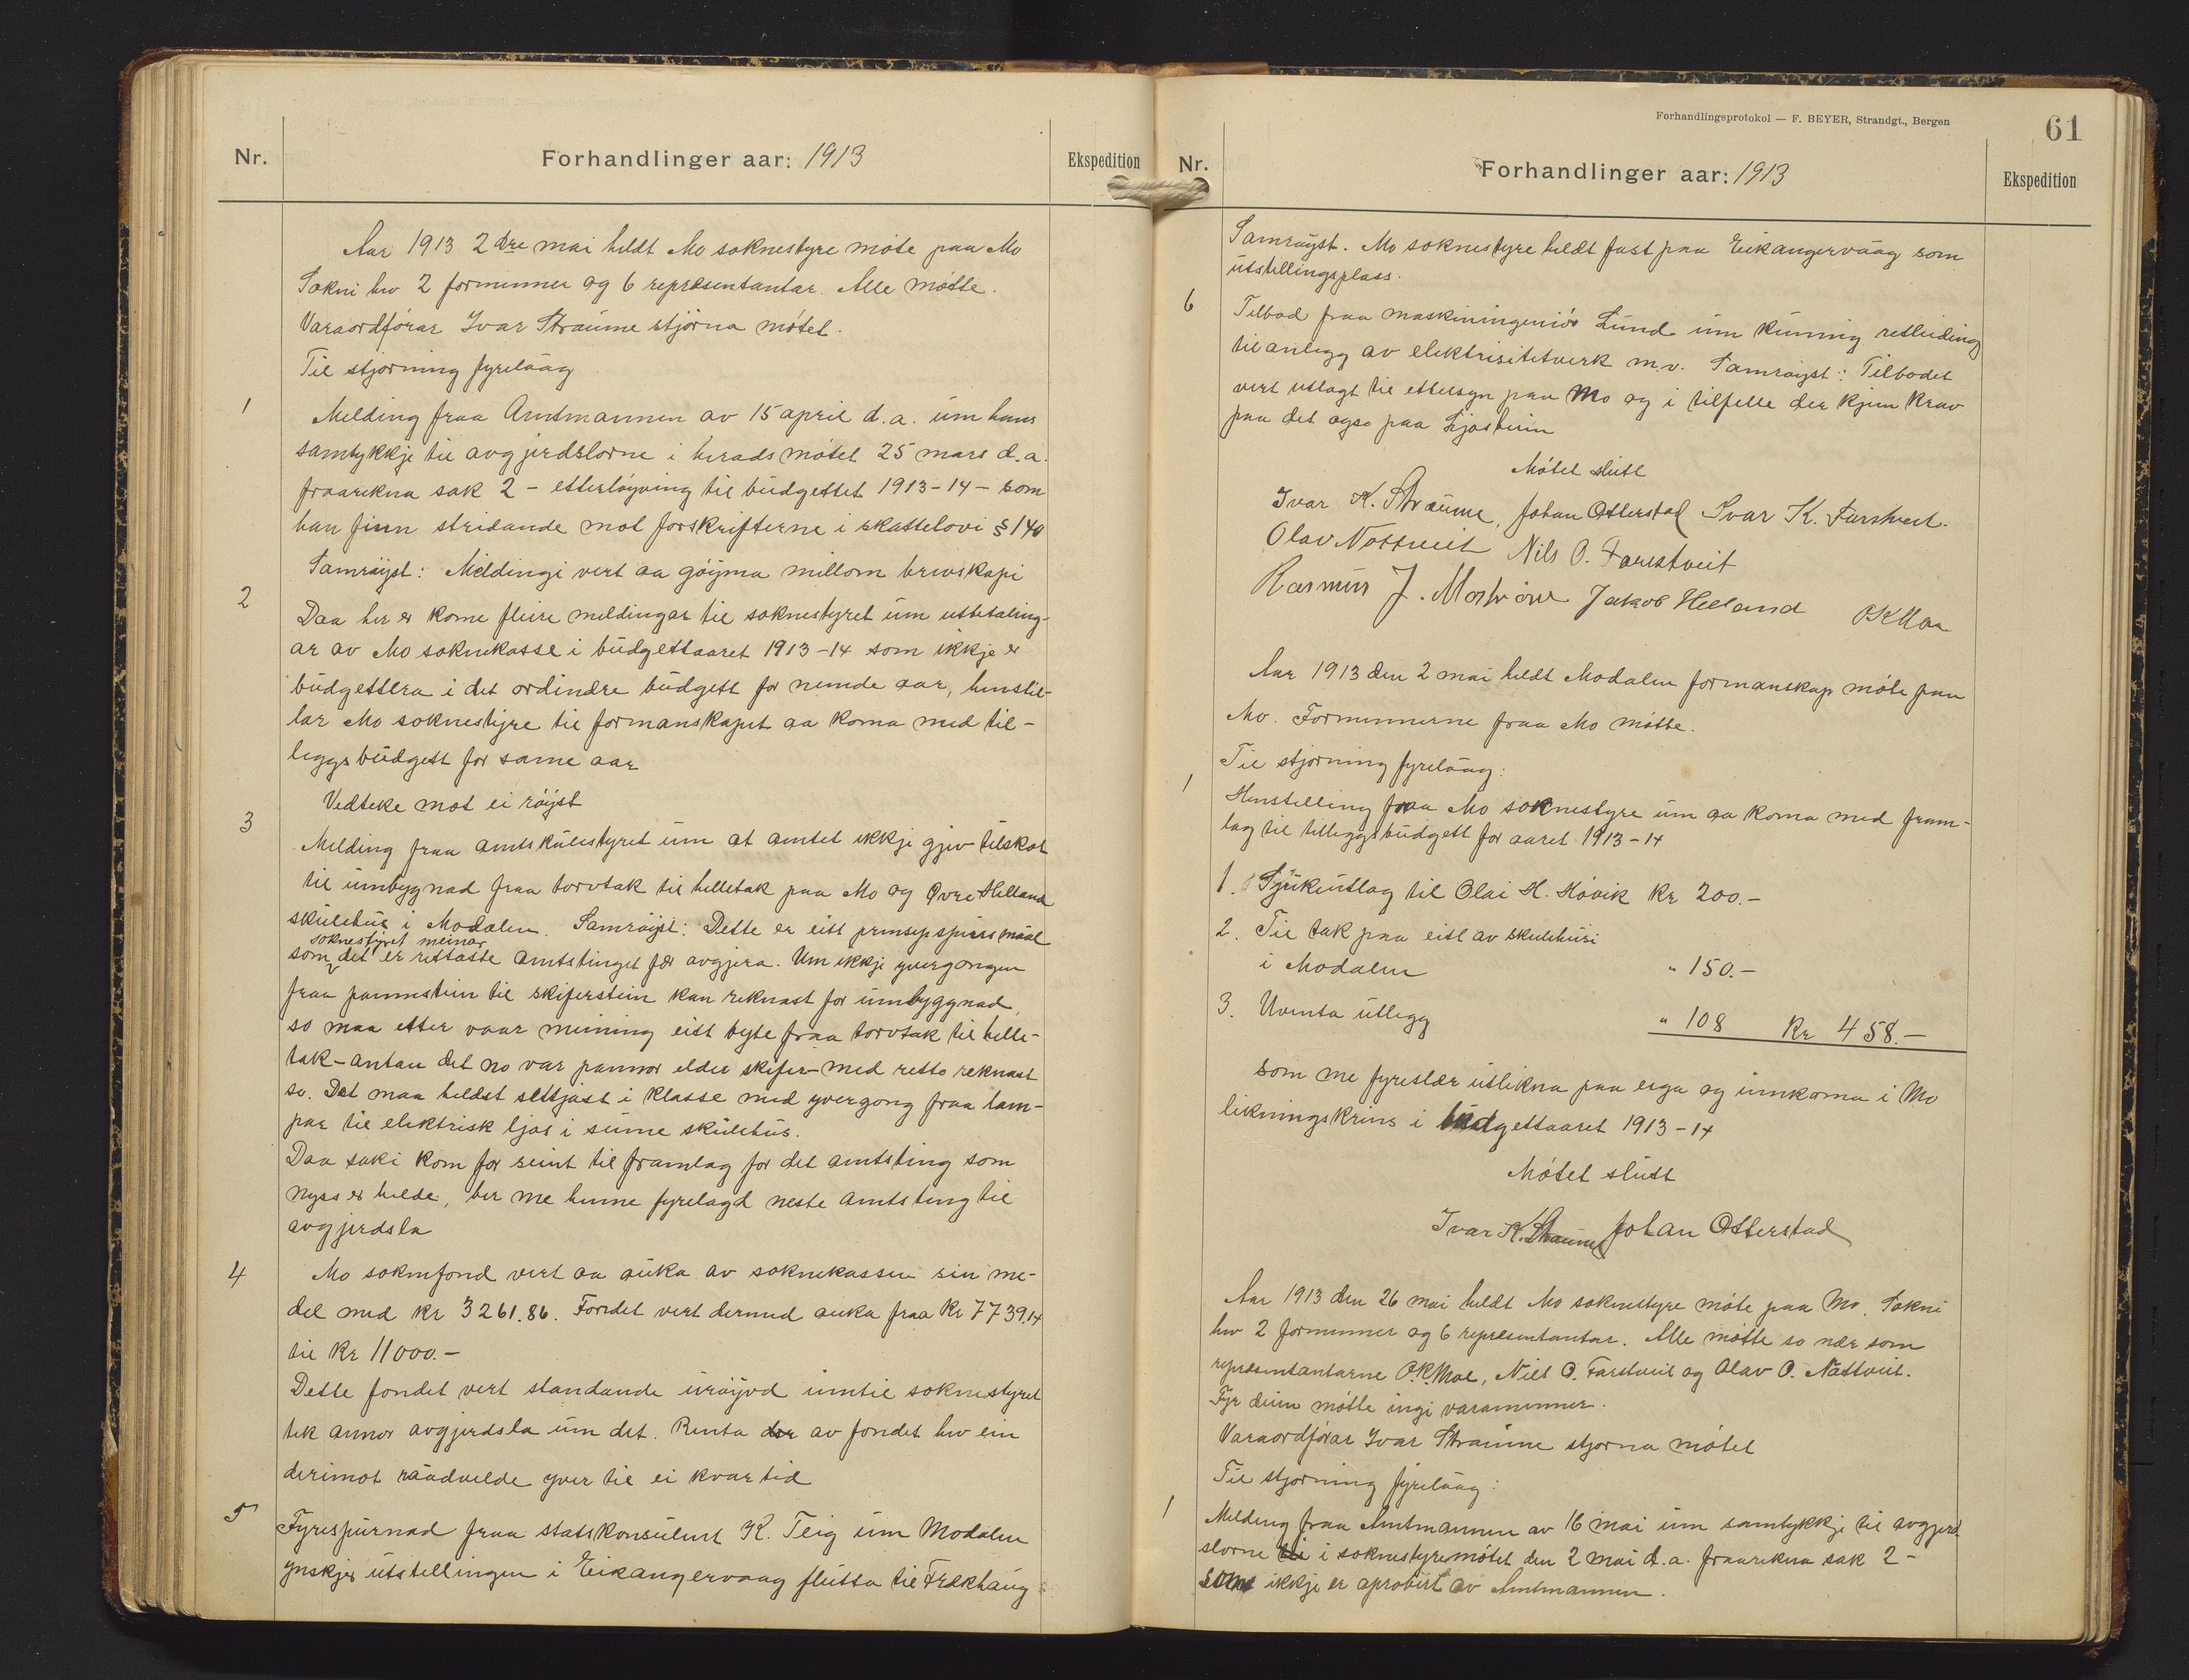 Nr.
Forhandlinger aar: 1913
Ekspedition
Aar 1913 2dre mai heldt Mo soknestyre møte paa Mo
Sokni hev 2 formenner og 6 repræsentantar. Alle møtte.
Varaordførar Ivar Straume stjorna møtet.
Til stjorning fyrelaag
1
Melding fraa Amtmannen av 15 april d.a. um hans
samtykkje til avgjerdslorne i heradsmøtet 25 mars d.a.
fraarekna sak 2 - etterløyving til budgettet 1913-14 - som
han finn stridande mot forskrifterne i skattelovi § 140
Samrøyst: Meldingi vert aa gøyma millom brevskapi
2
Daa her er kome fleire meldingar til soknestyret um utbetaling-
ar av Mo soknekasse i budgettaaret 1913-14 som ikkje er
budgettera i det ordinære budgett for nemde aar, henstil-
lar Mo soknestyre til formanskapet aa koma med til-
leggsbudgett for same aar
Vedteke mot ei røyst
3
Melding fraa amtskulestyret um at amtet ikkje gjev tilskot
til umbygnad fraa torvtak til helletak paa Mo og Øvre Helland
skulehus i Modalen. Samrøyst: Dette er eitt prinsipspursmaal
soknestyret meinar
som det er rettaste amtstinget fær avgjera. Um ikkje yvergongen
fraa pannestein til skiferstein kan reknast for umbyggnad,
so maa etter vaar meining eitt byte fraa torvtak til helle-
tak - antan det no var pannor elder skifer - med rette reknast
so. Det maa heldst settjast i klasse med yvergong fraa lam-
par til elektrisk ljos i sume skulehus.
Daa saki kom for seint til framlag for det amtsting som
nyss er helde, ber me henne fyrelagd neste amtsting til
avgjerdsla
4
Mo soknfond vert aa auka av soknekassen sin me-
del med kr 3261.86. Fondet vert dermed auka fraa kr 7739.14
til kr 11000.-
Dette fondet vert standande urøyvd umtil soknestyret
tek annor avgjerdsla um det. Renta der av fondet hev ein
derimot raadvelde yver til ei kvar tid
5
Fyrespurnad fraa statskonsulent K. Teig um Modalen
ynskjer utstellingen i Eikangervaag flutta til Frækhaug
Forhandlingsprotokol — F. BEYER, Strandgt., Bergen
61
Nr.
Forhandlinger aar: 1913
Ekspedition
Samrøyst. Mo soknestyre heldt fast paa Eikangervaag som
utstellingsplass.
6
Tilbod fraa maskiningeniør Lund um kunnig retleiding
til anlegg av elektrisitetverk m.v. Samrøyst: Tilbodet
vert utlagt til ettersyn paa Mo og i tilfelle der kjem krav
paa det ogso paa
Møtet slutt
Ivar K. Straume, Johan Otterstad Ivar K. Farstveit.
Olav Nottveit Nils O. Farestveit
Rasmus J. Jakob Helland OKMoe
Aar 1913 den 2 mai heldt Modalen formanskap møte paa
Mo. Formennerne fraa Mo møtte.
Til stjorning fyrelaag:
1
Henstelling fraa Mo soknestyre um aa koma med fram-
lag til tilleggsbudgett for aaret 1913-14
1. Sjukeutlag til Olai H. Høvik kr 200.-
2. Til tak paa eitt av skulehusi
i Modalen " 150.-
3. Uventa utlegg " 108 kr 458.-
som me fyreslær utlikna paa eiga og innkoma i Mo
likningskrins i budgettaaret 1913-14
Møtet slutt
Ivar K. Straume Johan Otterstad
Aar 1913 den 26 mai heldt Mo soknestyre møte paa Mo. Sokni
hev 2 formenner og 6 repræsentantar. Alle møtte so nær som
repræsentantarne O.K. Moe, Niels O. Farstveit og Olav O. Nattveit.
Fyr deim møtte ingi varamenner.
Varaordførar Ivar Straume stjorna møtet
Til stjorning fyrelaag:
1
Melding fraa Amtmannen av 16 mai um samtykkje til avgjerd
slorne til i soknestyremøtet den 2 mai d.a. fraarekna sak 2 -
som ikkje er aprobert av Amtmannen.